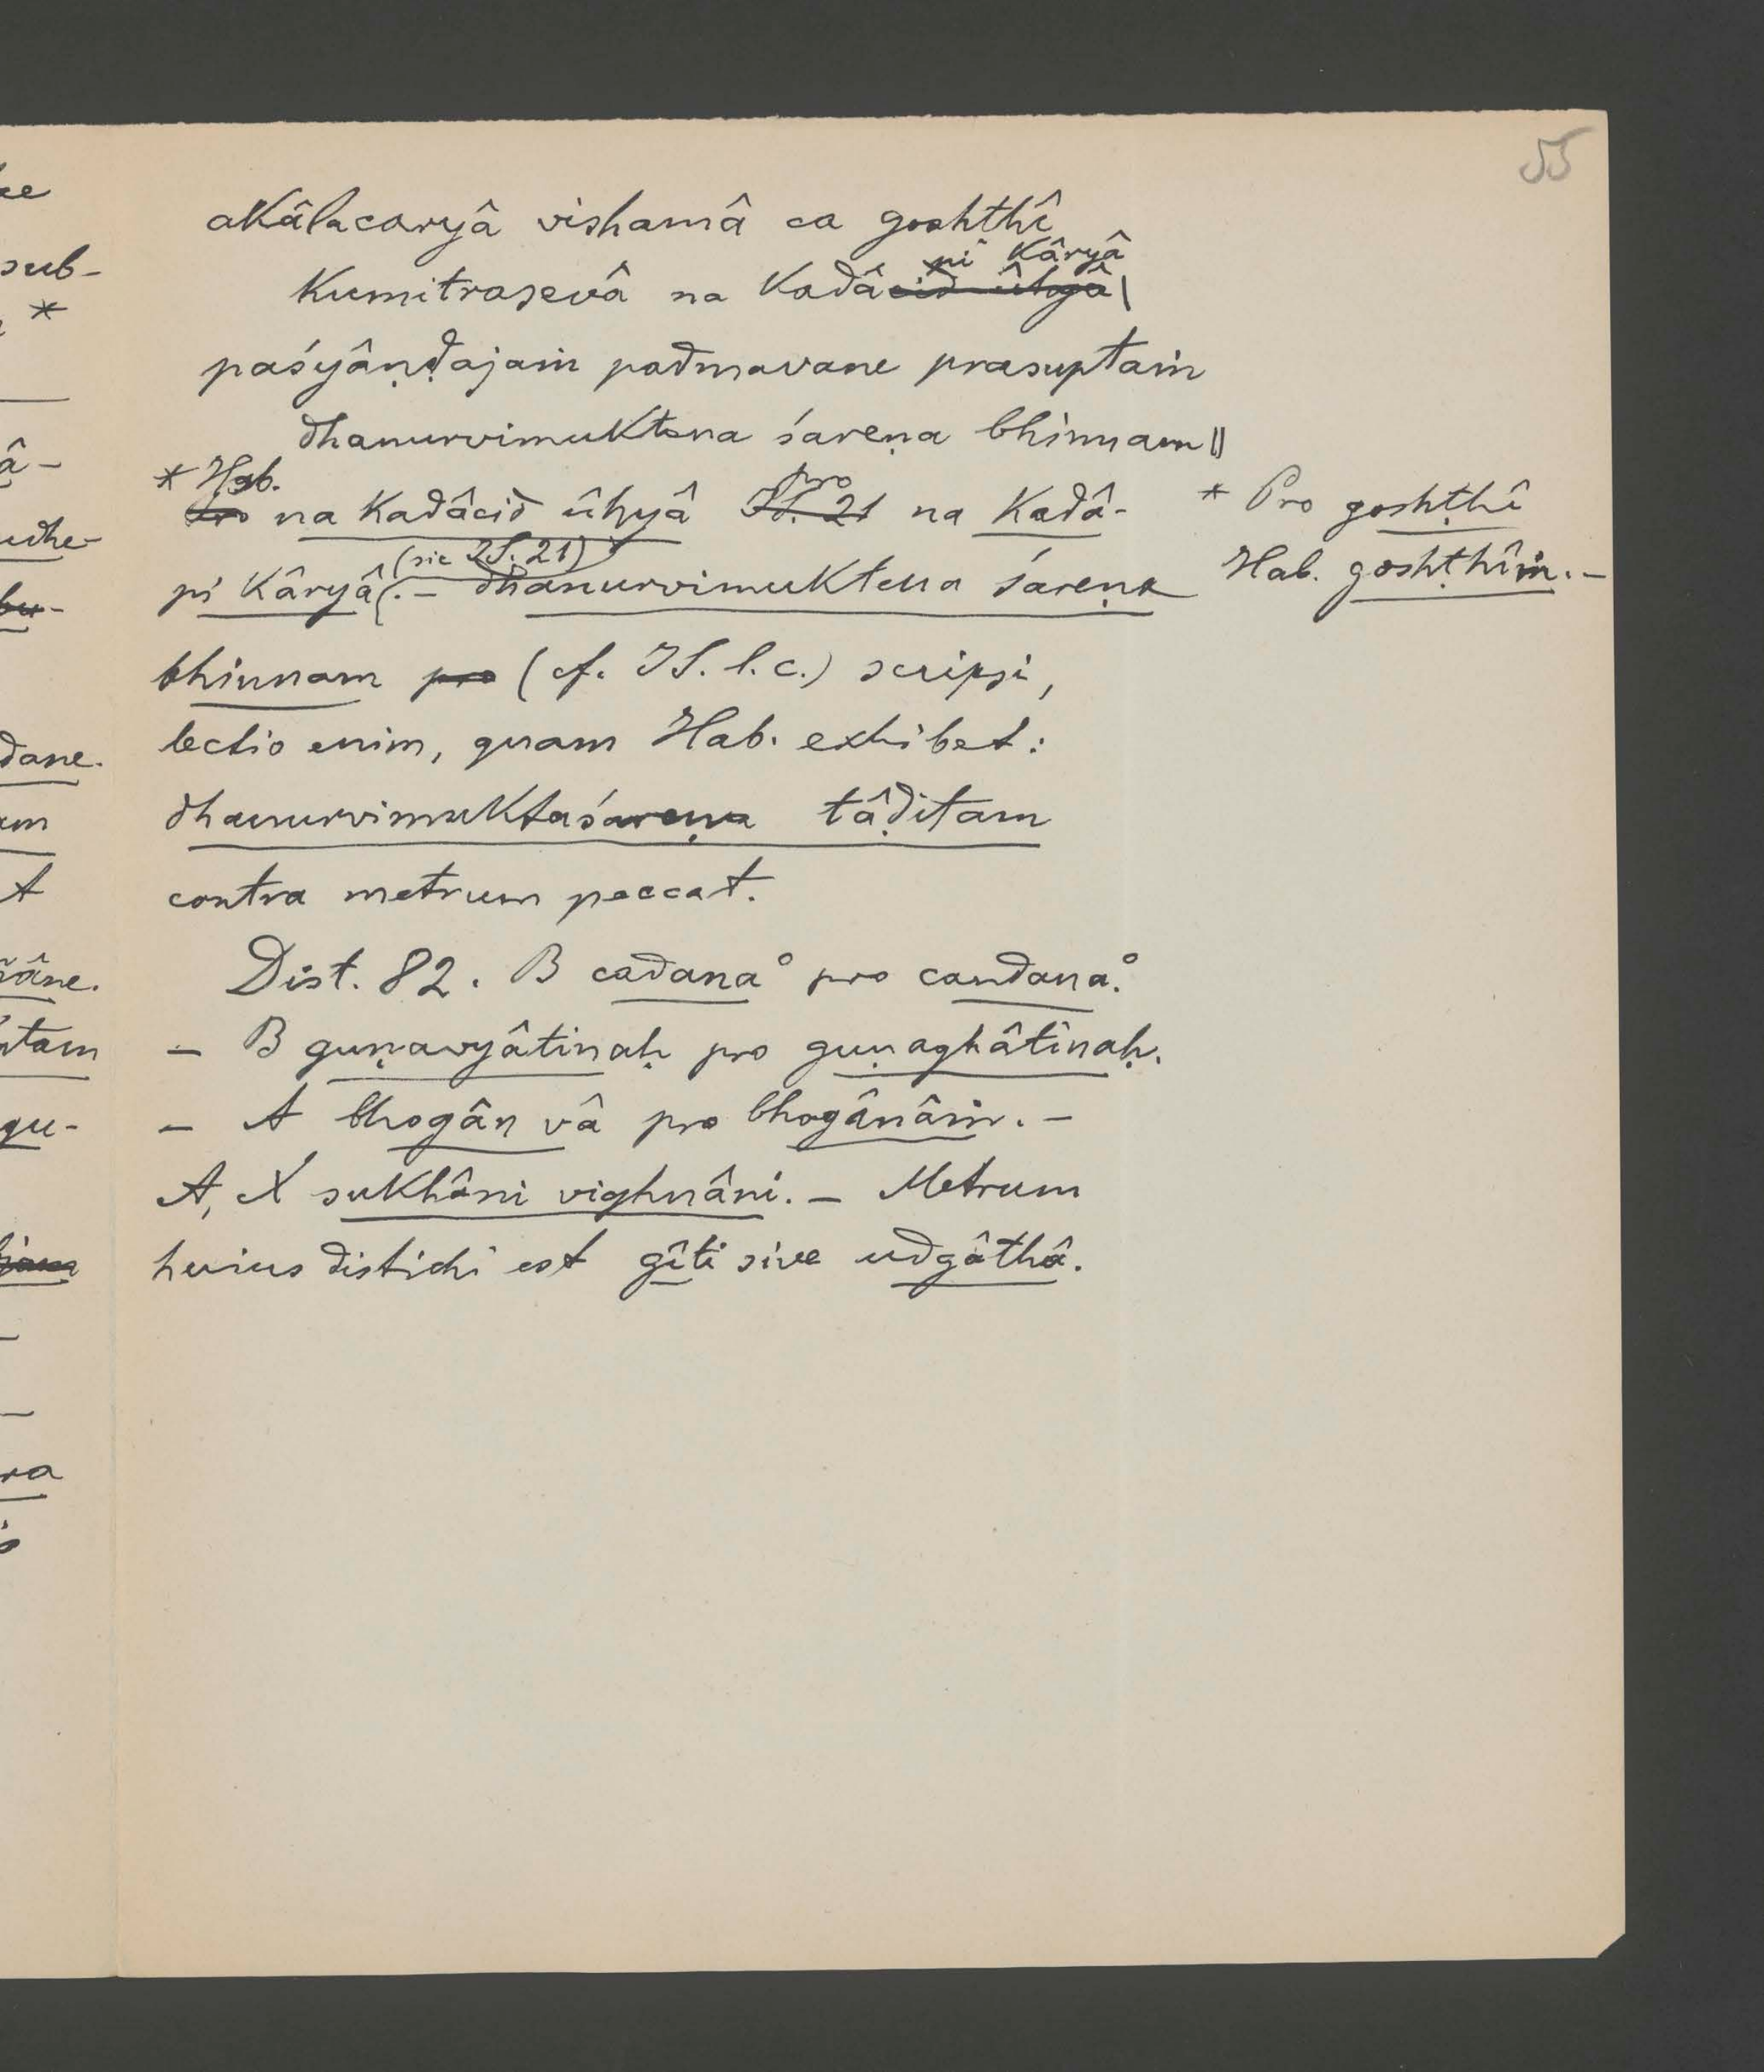 55
akâlacaryâ vishamâ ca goshthî
pi kâryâ
kumitrasevâ na kadâcid ûhyâ |
paśyâṇḍajaṁ padmavane prasuptaṁ
dhanurvimuktena śareṇa bhinnam ||
* Hab. pro
na kadâcid ûhyâ IS. 21 na kadâ-
(sic IS. 21)
pi kâryâ. – dhanurvimuktena śareṇa
bhinnam pro (cf. IS. l. c.) scripsi,
lectio enim, quam Hab. exhibet:
dhanurvimuktaśareṇa tâḍitam
contra metrum peccat.
Dist. 82. B cadana° pro candana°.
– B guṇavyâtinaḥ pro guṇaghâtinaḥ.
– A bhogân vâ pro bhogânâṁ. –
A, X sukhâni vighnâni. – Metrum
huius distichi est gîti sive udgâthâ.
* Pro goshṭhî
Hab. goshṭhîṁ. –